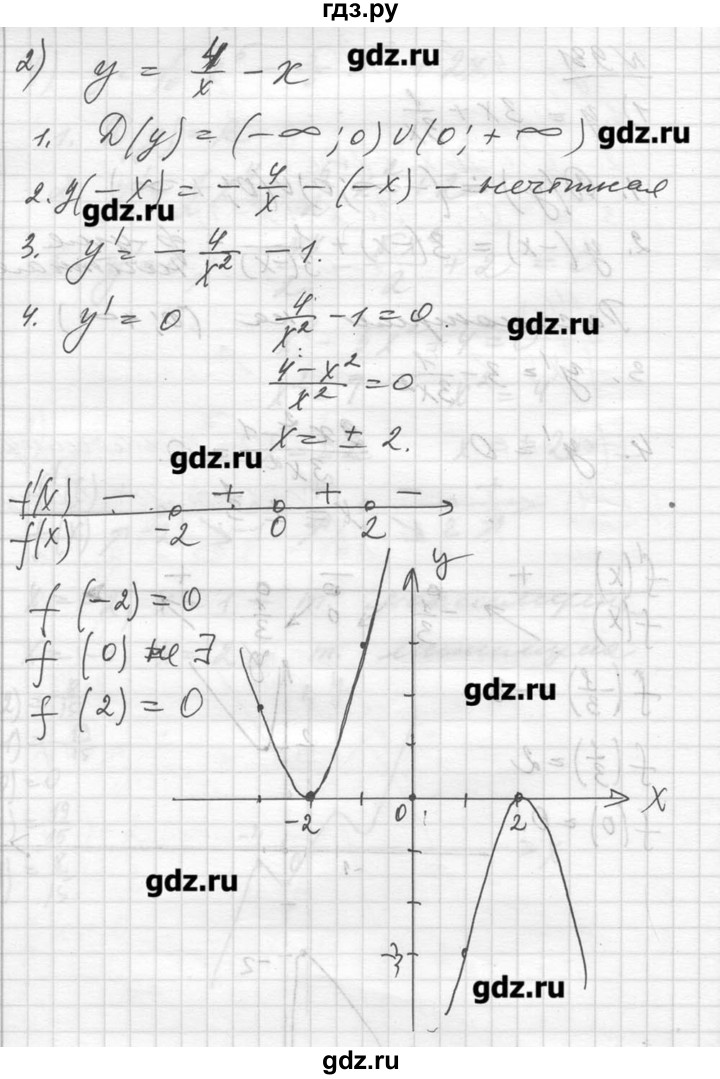 гдз.ру
2) y = 4/x - x
gdz.ru
1. D(y) = (-∞; 0) ∪ (0; +∞)
gdz.ru
2. y(-x) = - 4/x - (-x) - нечётная
gdz.ru
3. y' = - 4/x² - 1.
4. y' = 0 4/x² - 1 = 0.
gdz.ru
(4 - x²)/x² = 0
x = ± 2.
gdz.ru
f'(x) - + + -
f(x) -2 0 2
y
f (-2) = 0
f (0) не ∃
f (2) = 0
gdz.ru
-2 0 2 X
gdz.ru
-3
gdz.ru
gdz.ru